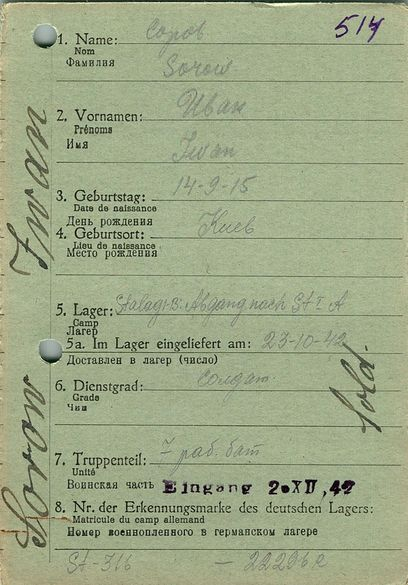 514
1. Name: Соров
Nom
Фамилия
Sorow
2. Vornamen: Иван
Prénoms
Имя
Iwan
3. Geburtstag: 14-9-15
Date de naissance
День рождения
4. Geburtsort: Киев
Lieu de naissance
Место рождения
5. Lager: Stalag I-B. Abgang nach St I A
Camp
Лагер
5a. Im Lager eingeliefert am: 23-10-42
Доставлен в лагер (число)
6. Dienstgrad: солдат.
Grade
Чин
7. Truppenteil: 7 раб. бат
Unité
Воинская часть Eingang 2. XII, 42
8. Nr. der Erkennungsmarke des deutschen Lagers:
Matricule du camp allemand
Номер военнопленного в германском лагере
St-316 — 22296
Sorow Iwan
Sold.